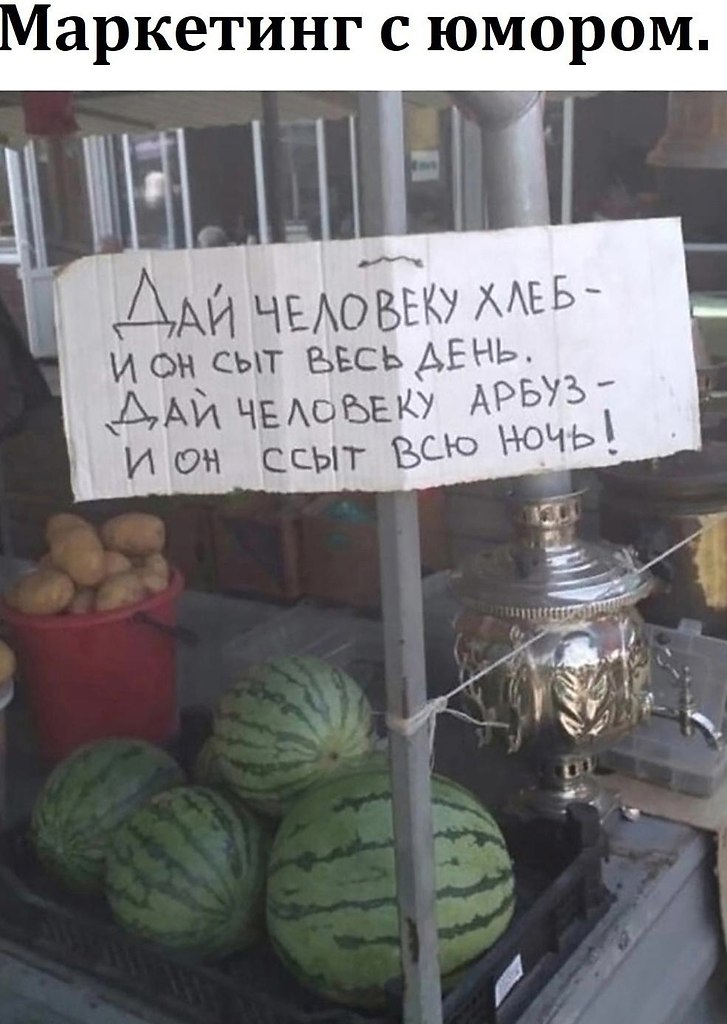 Маркетинг с юмором.
ДАЙ ЧЕЛОВЕКУ ХЛЕБ -
И ОН СЫТ ВЕСЬ ДЕНЬ.
ДАЙ ЧЕЛОВЕКУ АРБУЗ -
И ОН ССЫТ ВСЮ НОЧЬ!